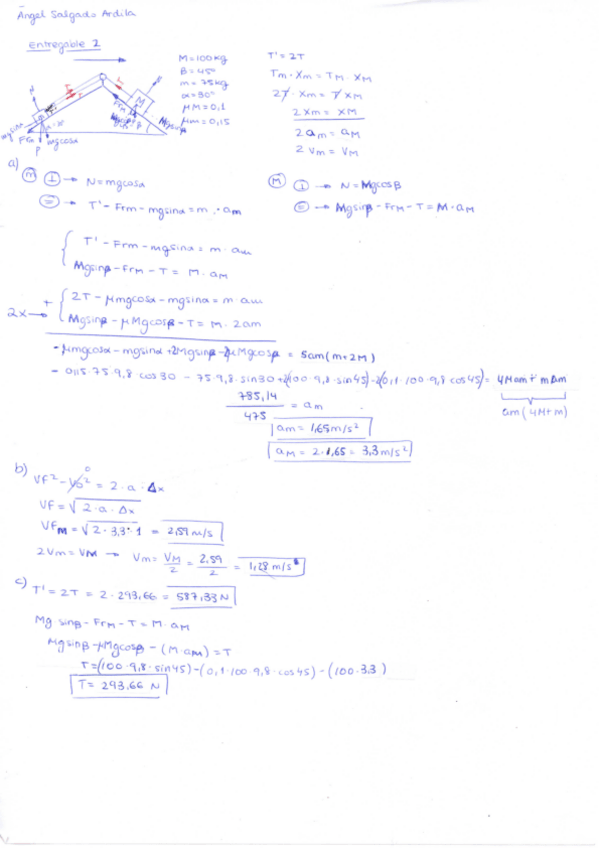 Ángel Salgado Ardila
entregable 2
M = 100kg
B = 45°
m = 75kg
α = 30°
μM = 0,1
μm = 0,15
T' = 2T
Tm · Xm = TM · XM
2T · Xm = T XM
2Xm = XM
2am = aM
2Vm = VM
mgsinα
mgcosα
P
a)
m ⊥ → N = mgcosα
= → T' - Frm - mgsinα = m · am
M ⊥ → N = Mgcosβ
= → Mgsinβ - FrM - T = M · aM
T' - Frm - mgsinα = m · am
Mgsinβ - FrM - T = M · aM
2x → + 2T - μmgcosα - mgsinα = m · am
Mgsinβ - μMgcosβ - T = M · 2am
- μmgcosα - mgsinα + 2Mgsinβ - 2μMgcosβ = 5am(m+2M)
- 0,15·75·9,8 cos30 - 75·9,8·sin30 + 2(100·9,8·sin45) - 2(0,1·100·9,8 cos45) = 4Mam + mam
am(4M+m)
785,14 / 475 = am
am = 1,65m/s²
aM = 2·1,65 = 3,3m/s²
b) VF² - Vo² = 2·a·Δx
0
VF = √2·a·Δx
VFM = √2·3,3·1 = 2,59m/s
2Vm = VM → Vm = VM/2 = 2,59/2 = 1,28m/s
c) T' = 2T = 2·293,66 = 587,33N
Mg sinβ - FrM - T = M·aM
Mgsinβ - μMgcosβ - (M·aM) = T
T = (100·9,8·sin45) - (0,1·100·9,8·cos45) - (100·3,3)
T = 293,66 N